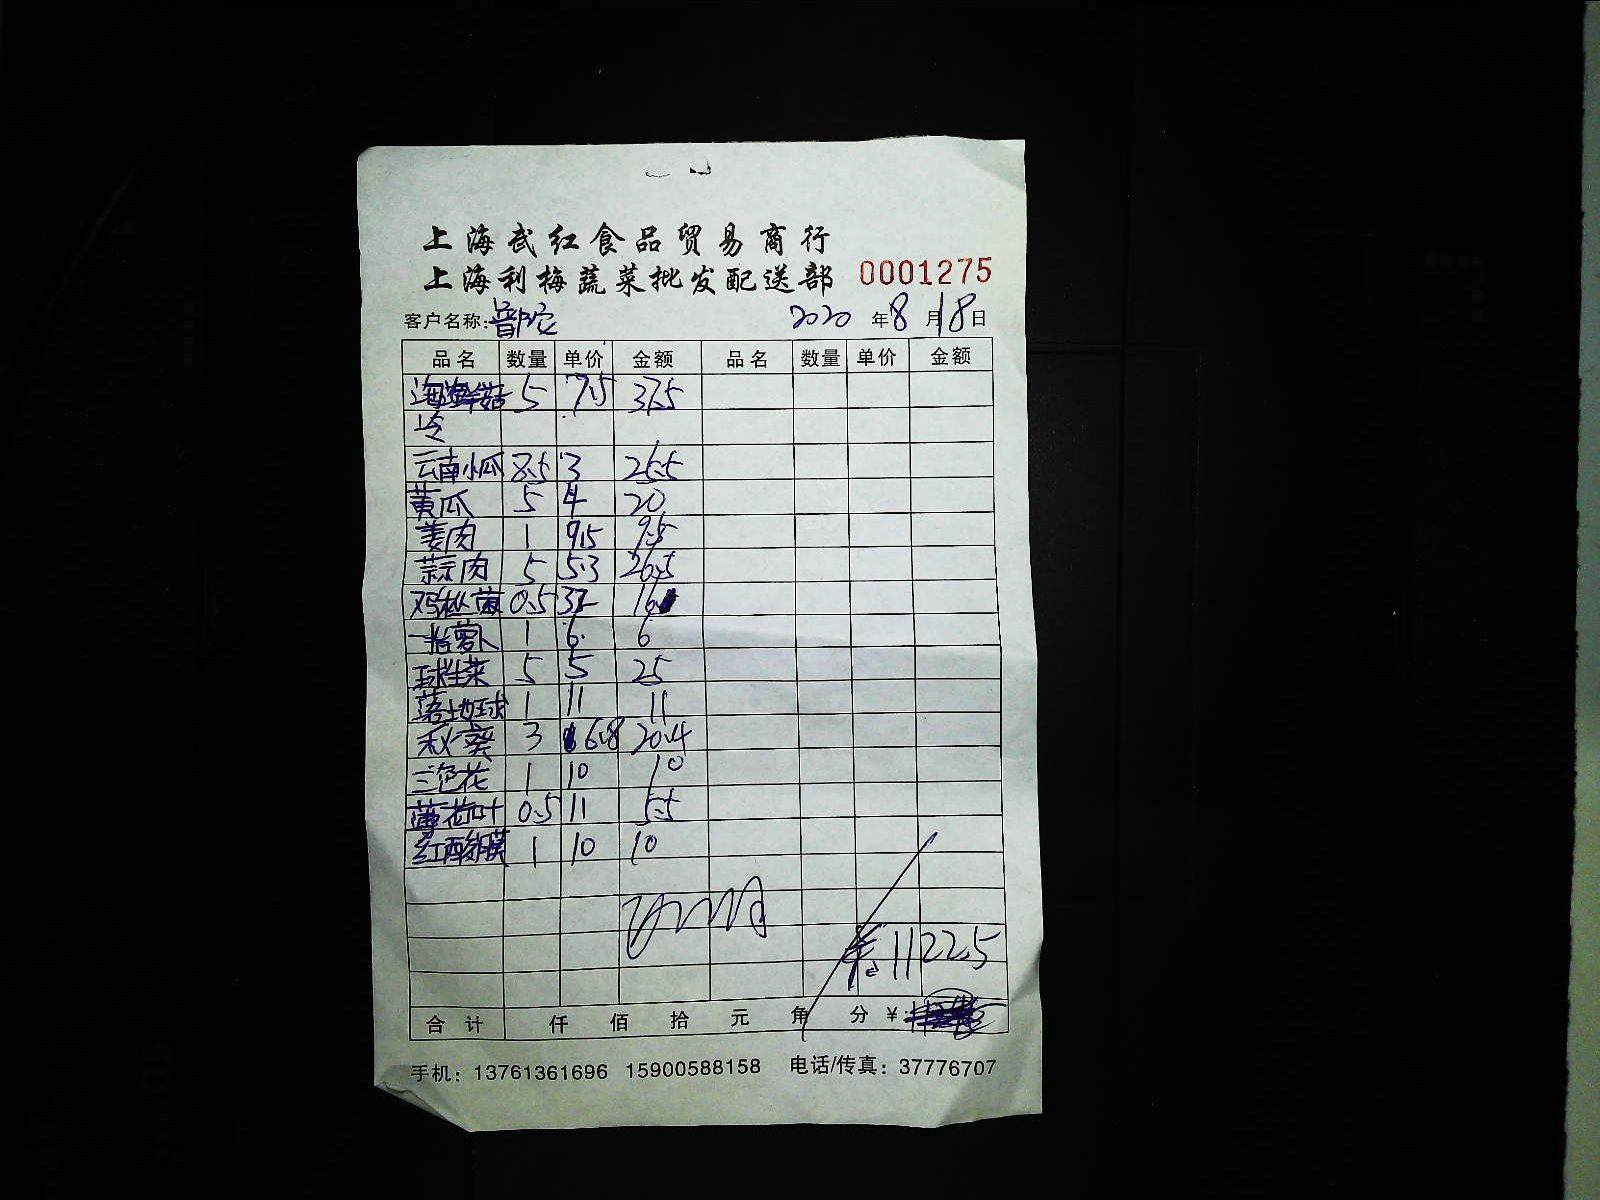 上海武红食品贸易商行
上海利梅蔬菜批发配送部 0001275
客户名称: 普陀 2020 年 8 月 18 日
品名 数量 单价 金额 品名 数量 单价 金额
海鲜菇 5 7.5 37.5
冷
云南小瓜 8.5 3 25.5
黄瓜 5 4 20
姜肉 1 9.5 9.5
蒜肉 5 5.3 26.5
鸡枞菌 0.5 32 16
一指萝卜 1 6. 6
球生菜 5 5 25
落地球 1 11 11
秋葵 3 6.8 20.4
三色花 1 10 10
薄荷叶 0.5 11 5.5
红酸膜 1 10 10
1122.5
合计 仟 佰 拾 元 角 分 ¥:
手机: 13761361696 15900588158 电话/传真: 37776707